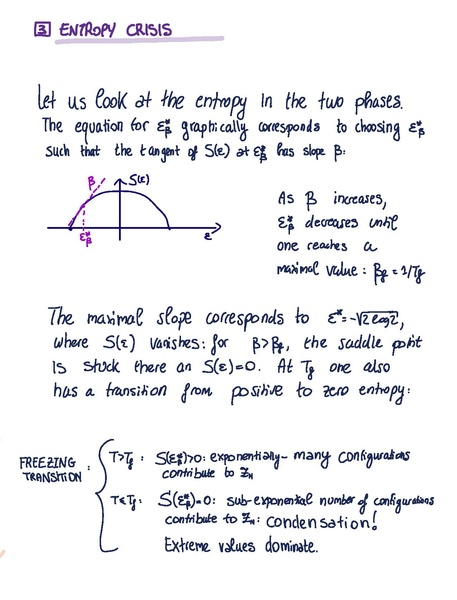 3 ENTROPY CRISIS
Let us look at the entropy in the two phases.
The equation for ε*β graphically corresponds to choosing ε*β
such that the tangent of S(ε) at ε*β has slope β:
β S(ε)
ε*β ε
As β increases,
ε*β decreases until
one reaches a
maximal value: βf = 1/Tf
The maximal slope corresponds to ε* = -√2log2,
where S(ε) vanishes: for β>βf, the saddle point
is stuck there an S(ε)=0. At Tf one also
has a transition from positive to zero entropy:
FREEZING
TRANSITION :
T>Tf : S(ε*β)>0: exponentially-many configurations
contribute to ZN
T≤Tf : S(ε*β)=0: sub-exponential number of configurations
contribute to ZN: condensation!
Extreme values dominate.